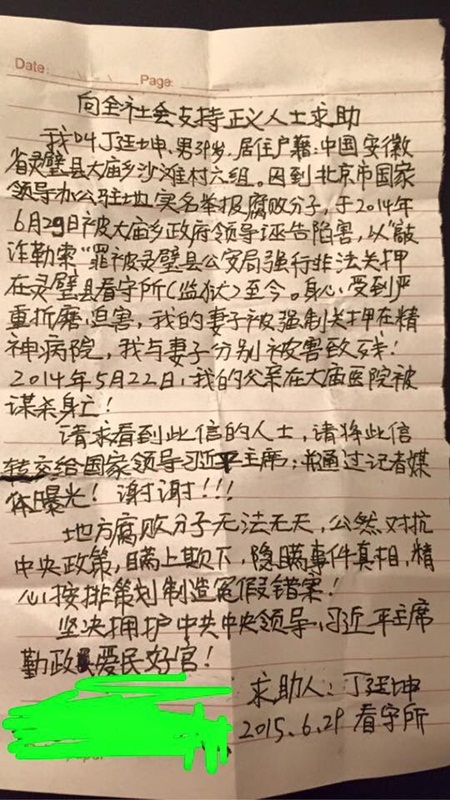 Date:
Page:
向全社会支持正义人士求助
我叫丁廷坤、男38岁、居住户藉:中国安徽
省灵璧县大庙乡沙滩村六组。因到北京市国家
领导办公驻地实名举报腐败分子,于2014年
6月29日被大庙乡政府领导诬告陷害,以"敲
诈勒索"罪被灵璧县公安局强行非法关押
在灵璧县看守所(监狱)至今。身心受到严
重折磨迫害,我的妻子被强制关押在精
神病院,我与妻子分别被害致残!
2014年5月22日,我的父亲在大庙医院被
谋杀身亡!
请求看到此信的人士,请将此信
转交给国家领导习近平主席;并通过记者媒
体曝光!谢谢!!!
地方腐败分子无法无天,公然对抗
中央政策,瞒上欺下,隐瞒事件真相,精
心按排策划制造冤假错案!
坚决拥护中共中央领导、习近平主席
勤政爱民好官!
求助人:丁廷坤
2015.6.29 看守所